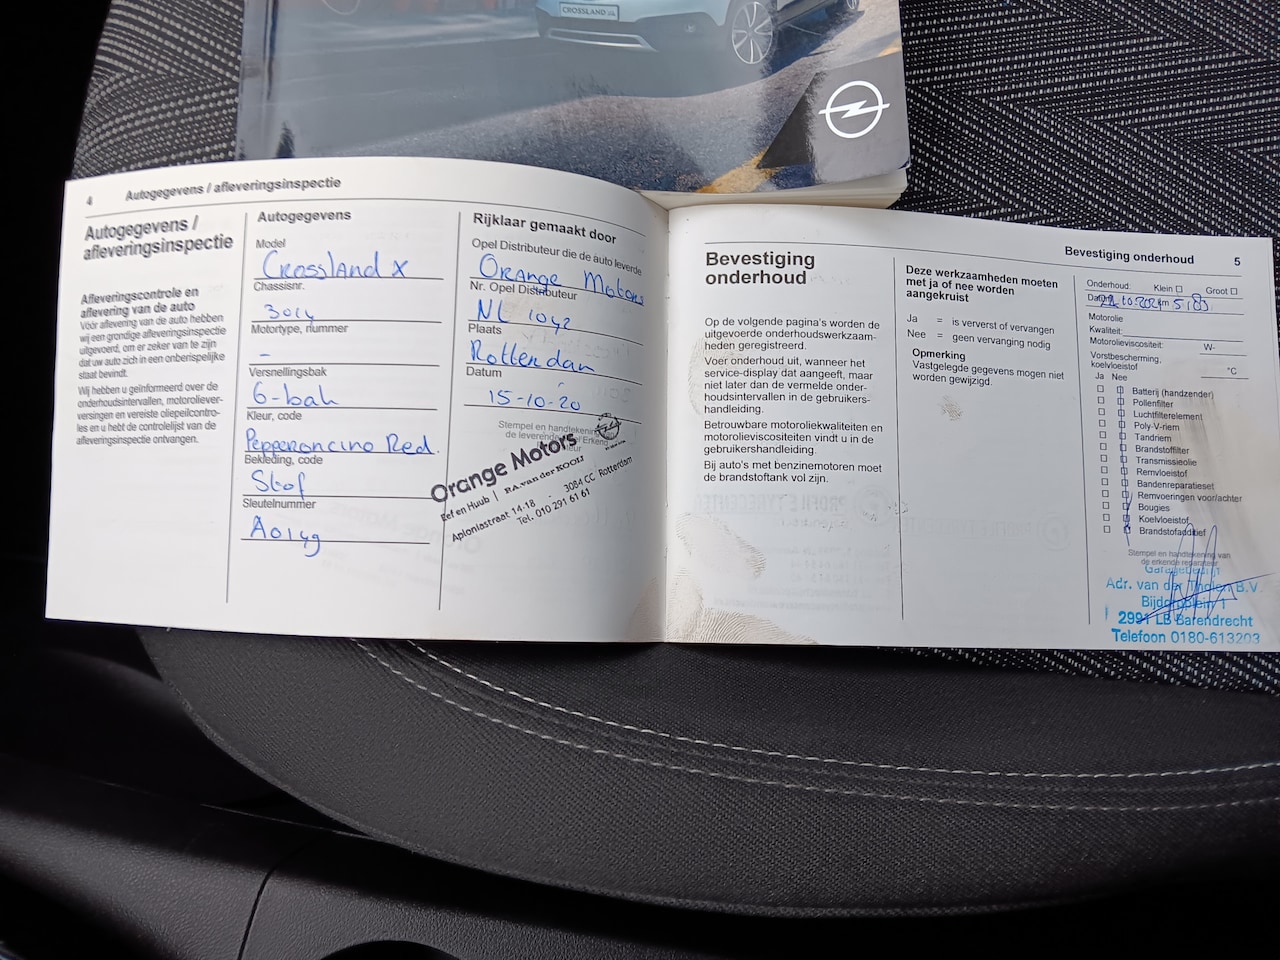 CROSSLAND
4 Autogegevens / afleveringsinspectie
Autogegevens /
afleveringsinspectie
Afleveringscontrole en
aflevering van de auto
Vóór aflevering van de auto hebben
wij een grondige afleveringsinspectie
uitgevoerd, om er zeker van te zijn
dat uw auto zich in een onberispelijke
staat bevindt.
Wij hebben u geïnformeerd over de
onderhoudsintervallen, motoroliever-
versingen en vereiste oliepeilcontro-
les en u hebt de controlelijst van de
afleveringsinspectie ontvangen.
Autogegevens
Model
Crossland X
Chassisnr.
3014
Motortype, nummer
-
Versnellingsbak
6-bak
Kleur, code
Pepperoncino Red.
Bekleding, code
Stof
Sleutelnummer
A0149
Rijklaar gemaakt door
Opel Distributeur die de auto leverde
Orange Motors
Nr. Opel Distributeur
NL 1042
Plaats
Rotterdam
Datum
15-10-20
Stempel en handtekening van
de leverende Opel Erkend
Orange Motors
Eef en Huub | P.A. van der KOOIJ
Aploniastraat 14-18 - 3084 CC Rotterdam
Tel. 010 291 61 61
Bevestiging onderhoud 5
Bevestiging
onderhoud
Op de volgende pagina's worden de
uitgevoerde onderhoudswerkzaam-
heden geregistreerd.
Voer onderhoud uit, wanneer het
service-display dat aangeeft, maar
niet later dan de vermelde onder-
houdsintervallen in de gebruikers-
handleiding.
Betrouwbare motoroliekwaliteiten en
motorolieviscositeiten vindt u in de
gebruikershandleiding.
Bij auto's met benzinemotoren moet
de brandstoftank vol zijn.
Deze werkzaamheden moeten
met ja of nee worden
aangekruist
Ja = is ververst of vervangen
Nee = geen vervanging nodig
Opmerking
Vastgelegde gegevens mogen niet
worden gewijzigd.
Onderhoud: Klein Groot
Motorolie
Kwaliteit:
Motorolieviscositeit: W-
Vorstbescherming,
koelvloeistof °C
Ja Nee
Batterij (handzender)
Pollenfilter
Luchtfilterelement
Poly-V-riem
Tandriem
Brandstoffilter
Transmissieolie
Remvloeistof
Bandenreparatieset
Remvoeringen voor/achter
Bougies
Koelvloeistof
Brandstofadditief
Stempel en handtekening van
de erkende reparateur
Garagebedrijf
Adr. van der Tholen B.V.
Bijdorpplein 1
2991 LB Barendrecht
Telefoon 0180-613203